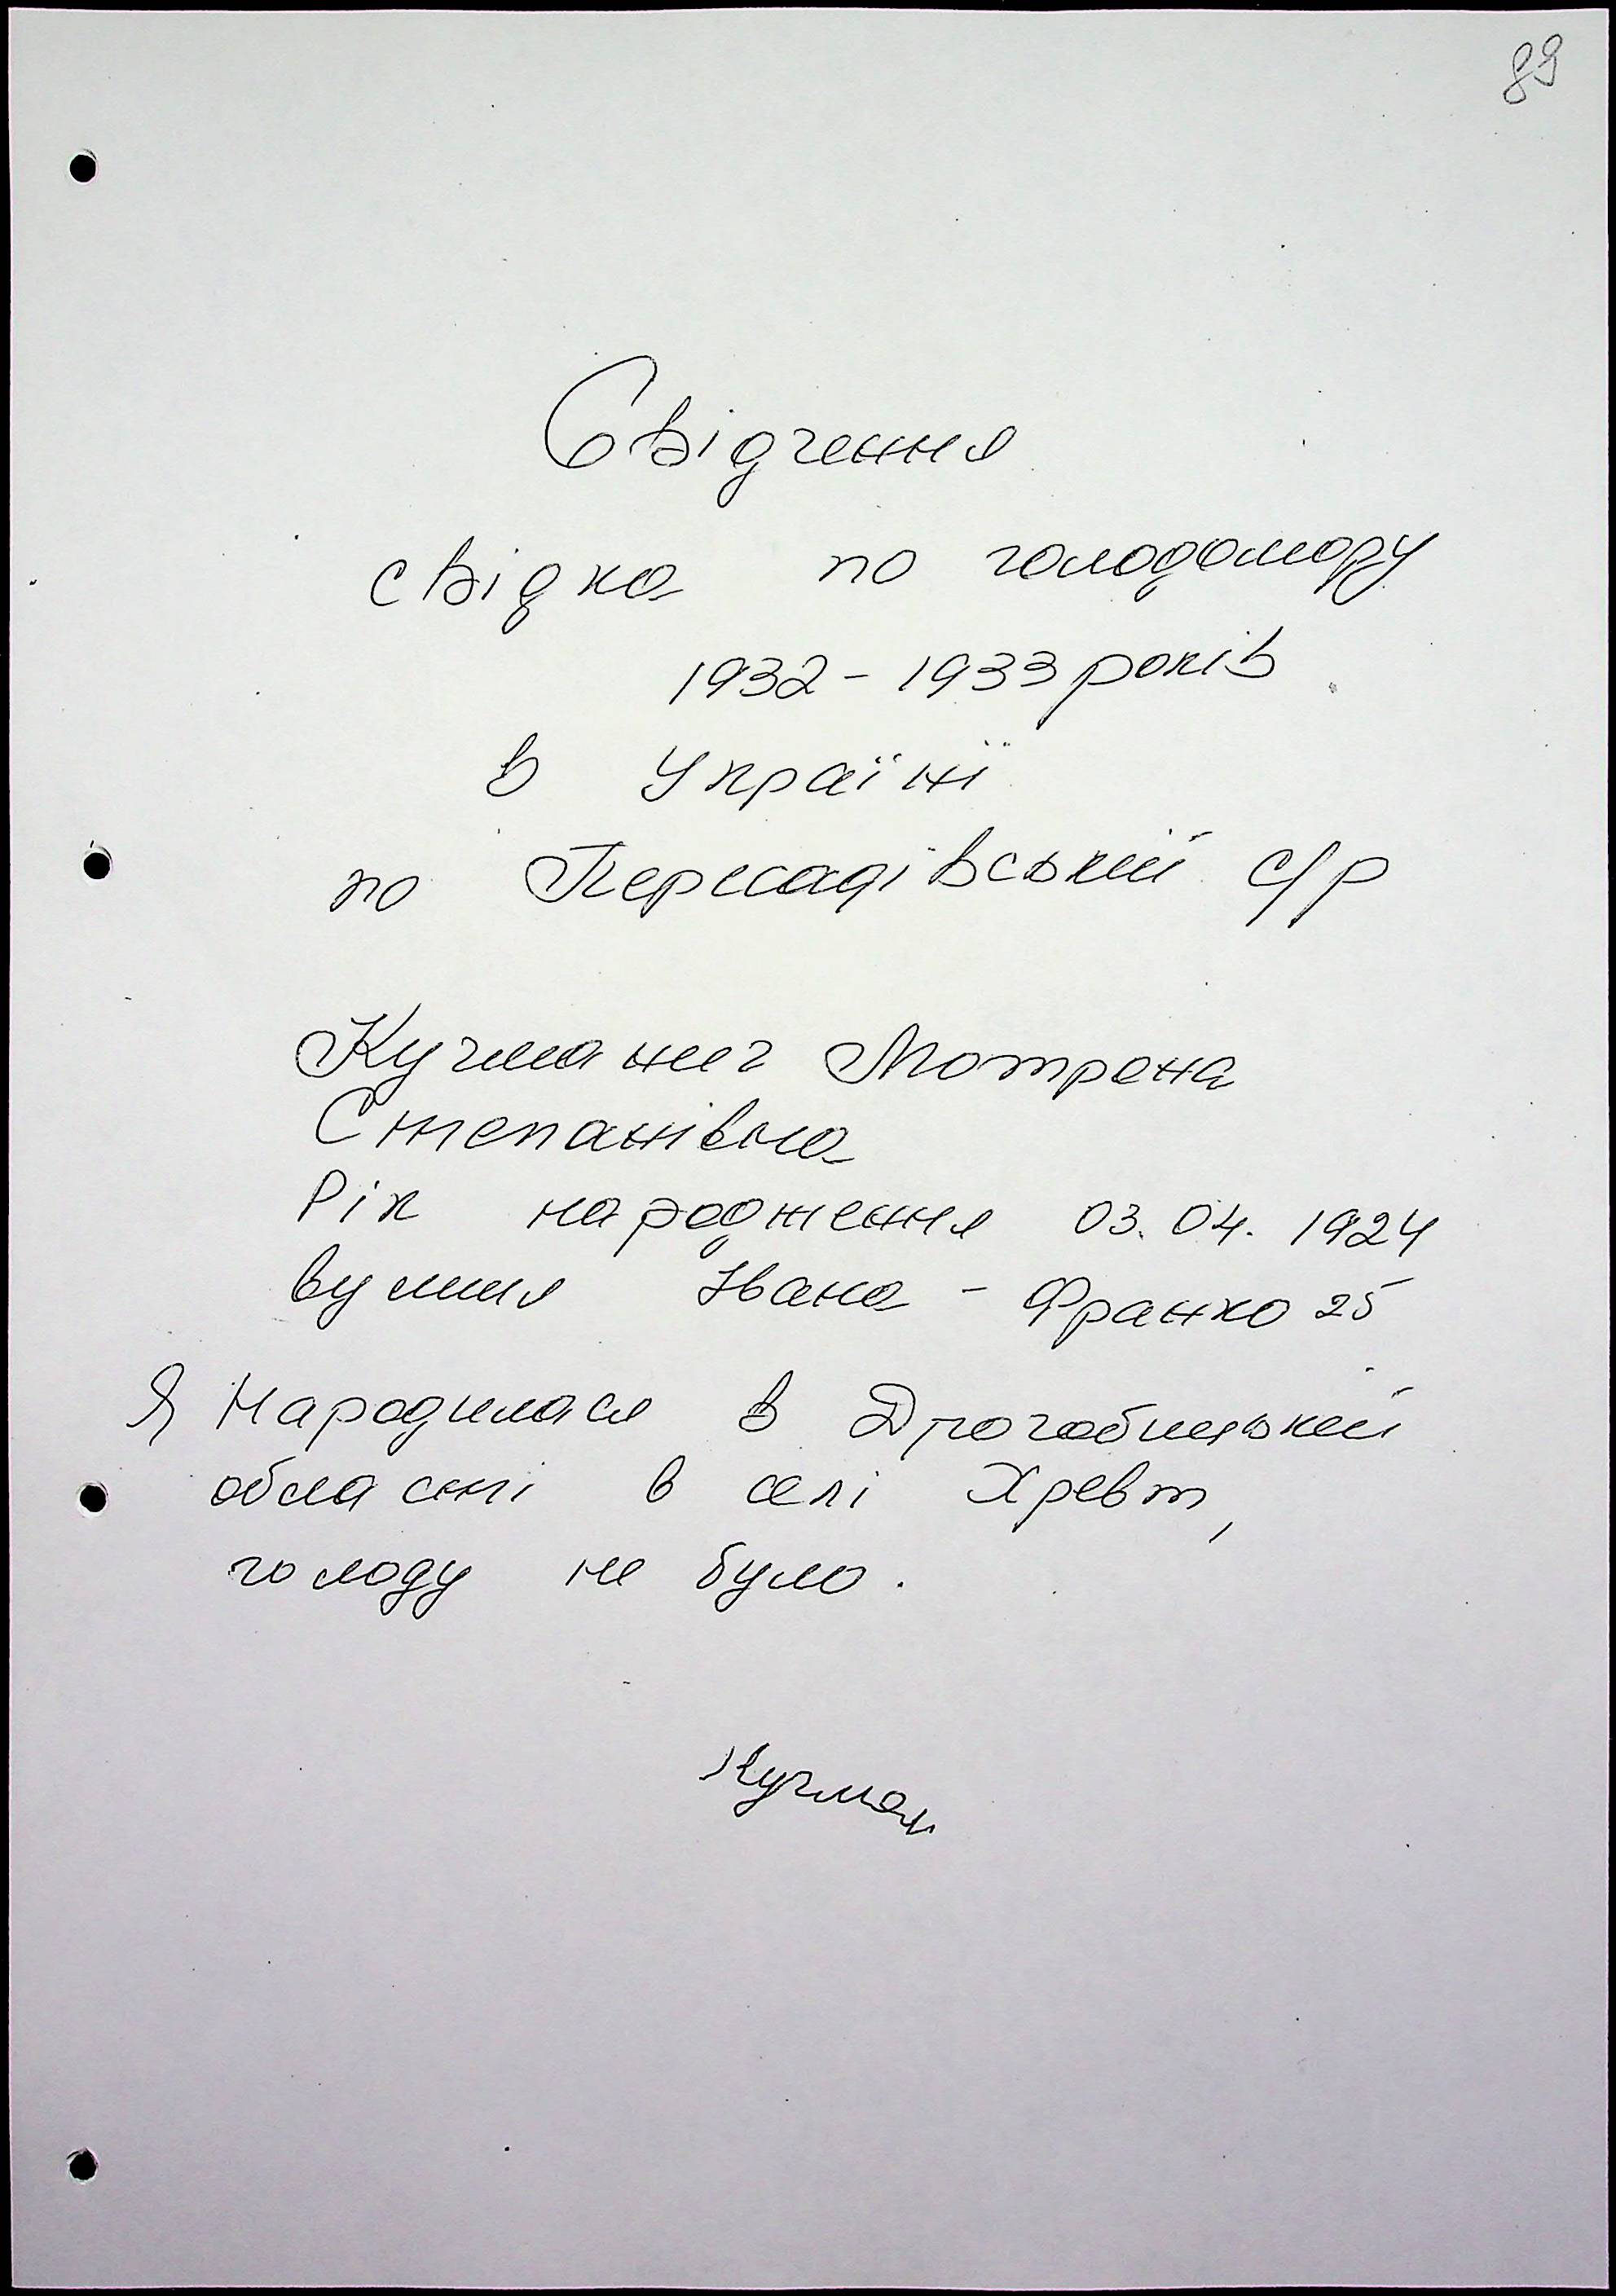 89
Свідчення
свідка по голодомору
1932 - 1933 років
в Україні
по Пересадівській с/р
Кучманич Мотрона
Степанівна
Рік народження 03.04.1924
вулиця Івана - Франко 25
Я Народилася в Дрогобицькій
області в селі Хревт,
голоду не було.
Кучман